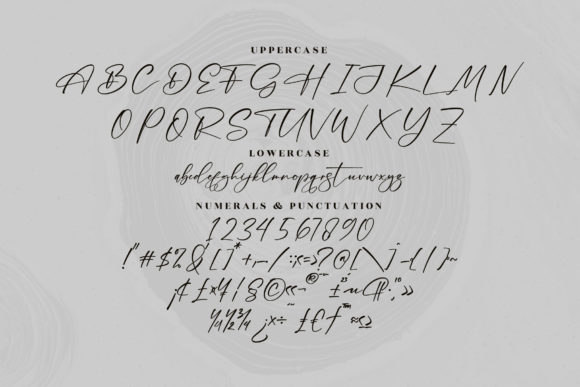 UPPERCASE
ABCDEFGHIJKLMN
OPQRSTUVWXYZ
LOWERCASE
abcdefghijklmnopqrstuvwxyz
NUMERALS & PUNCTUATION
1234567890
!"#$%&'[]*+,-/:;<=>?@[\]^_{|}~
¡¢£¤¥¦§©«¬®¯°±²³´µ¶·¸¹º»
¼½¾¿×÷₤£€ƒ™≈≤≥